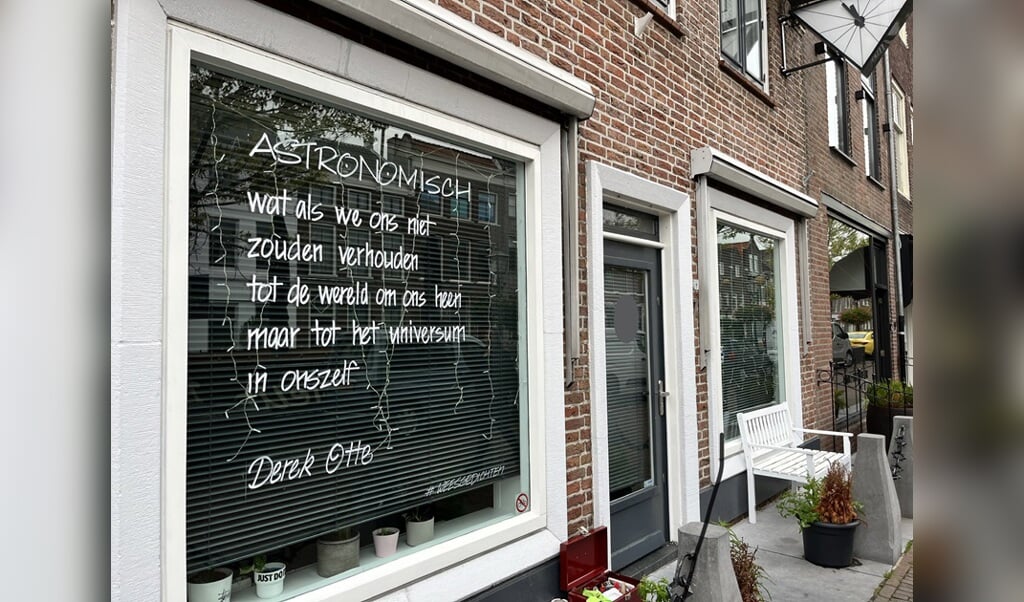 ASTRONOMISCH
wat als we ons niet
zouden verhouden
tot de wereld om ons heen
maar tot het universum
in onszelf
Derek Otte
#WEESGEDICHTEN
JUST DO